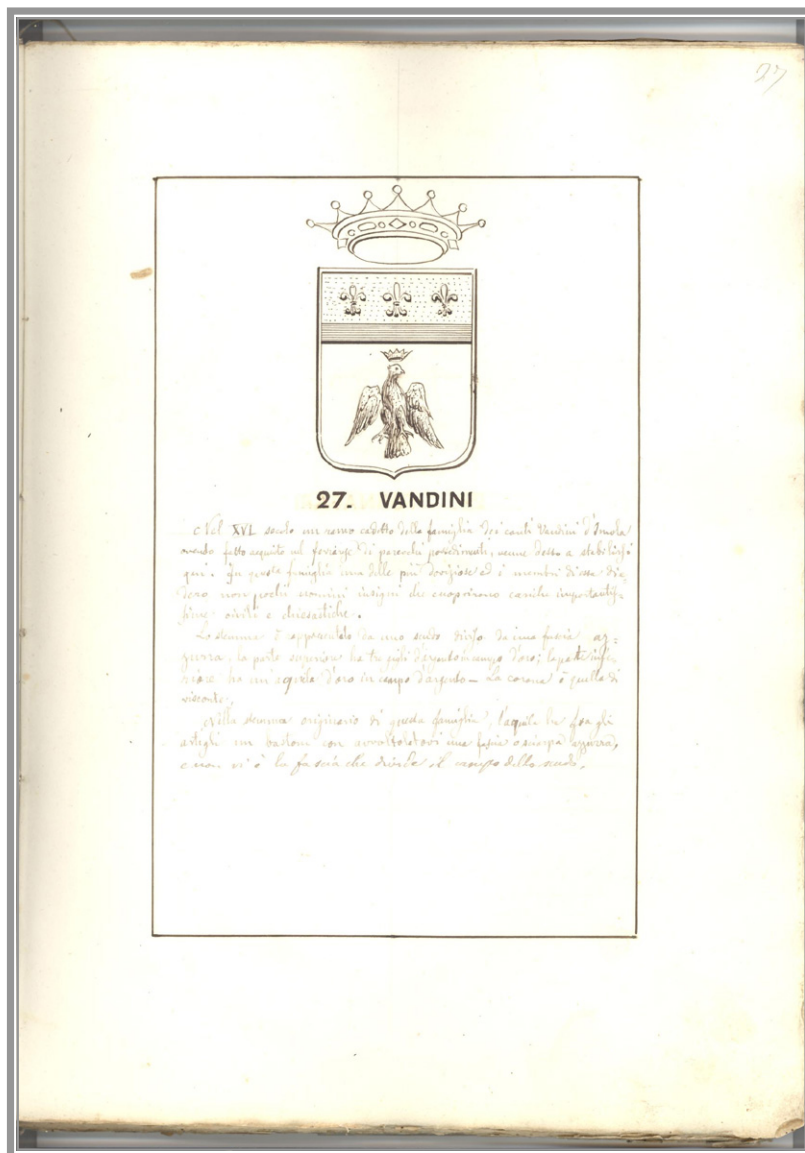 27
27. VANDINI
Nel XVI secolo un ramo cadetto della famiglia dei conti Vandini d'Imola
avendo fatto acquisto nel di parecchi possedimenti, venne desso a stabilirsi
qui. In questa famiglia una delle più doviziose ed i membri di essa die=
dero non pochi uomini insigni che cuoprirono cariche importantis=
sime civili e chiesastiche.
Lo stemma è rappresentato da uno scudo diviso da una fascia az=
zurra, la parte superiore ha tre gigli d'argento in campo d'oro; la parte infe=
riore ha un'aquila d'oro in campo d'argento – La corona è quella di
visconte.
Nello stemma originario di questa famiglia, l'aquila ha fra gli
artigli un bastone con avvoltolatovi una fascia o sciarpa azzurra,
e non vi è la fascia che divide il campo dello scudo.